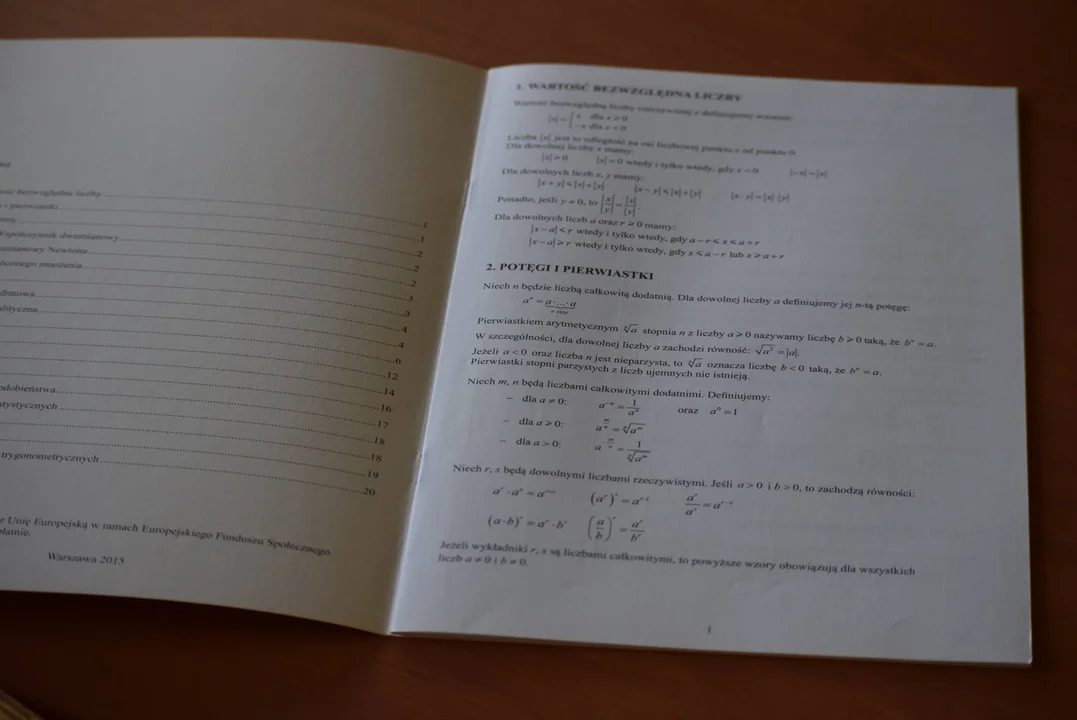 bezwzględna liczby 1
i pierwiastki 1
Współczynnik dwumianowy 2
dwumianowy Newtona 2
mnożenia 3
3
4
4
6
12
14
16
17
18
18
trygonometrycznych 19
20
z Unię Europejską w ramach Europejskiego Funduszu Społecznego.
Warszawa 2015
1. WARTOŚĆ BEZWZGLĘDNA LICZBY
Wartość bezwzględną liczby rzeczywistej x definiujemy wzorem:
|x| = { x dla x ≥ 0
−x dla x < 0
Liczba |x| jest to odległość na osi liczbowej punktu x od punktu 0.
Dla dowolnej liczby x mamy:
|x| ≥ 0 |x| = 0 wtedy i tylko wtedy, gdy x = 0 |−x| = |x|
Dla dowolnych liczb x, y mamy:
|x + y| ≤ |x| + |y| |x − y| ≤ |x| + |y| |x · y| = |x| · |y|
Ponadto, jeśli y ≠ 0, to |x/y| = |x|/|y|.
Dla dowolnych liczb a oraz r ≥ 0 mamy:
|x − a| ≤ r wtedy i tylko wtedy, gdy a − r ≤ x ≤ a + r
|x − a| ≥ r wtedy i tylko wtedy, gdy x ≤ a − r lub x ≥ a + r
2. POTĘGI I PIERWIASTKI
Niech n będzie liczbą całkowitą dodatnią. Dla dowolnej liczby a definiujemy jej n-tą potęgę:
aⁿ = a · ... · a
n razy
Pierwiastkiem arytmetycznym ⁿ√a stopnia n z liczby a ≥ 0 nazywamy liczbę b ≥ 0 taką, że bⁿ = a.
W szczególności, dla dowolnej liczby a zachodzi równość: √a² = |a|.
Jeżeli a < 0 oraz liczba n jest nieparzysta, to ⁿ√a oznacza liczbę b < 0 taką, że bⁿ = a.
Pierwiastki stopni parzystych z liczb ujemnych nie istnieją.
Niech m, n będą liczbami całkowitymi dodatnimi. Definiujemy:
− dla a ≠ 0: a⁻ⁿ = 1/aⁿ oraz a⁰ = 1
− dla a ≥ 0: a^(m/n) = ⁿ√aᵐ
− dla a > 0: a^(−m/n) = 1/ⁿ√aᵐ
Niech r, s będą dowolnymi liczbami rzeczywistymi. Jeśli a > 0 i b > 0, to zachodzą równości:
aʳ · aˢ = aʳ⁺ˢ (aʳ)ˢ = aʳ·ˢ aʳ/aˢ = aʳ⁻ˢ
(a·b)ʳ = aʳ · bʳ (a/b)ʳ = aʳ/bʳ
Jeżeli wykładniki r, s są liczbami całkowitymi, to powyższe wzory obowiązują dla wszystkich
liczb a ≠ 0 i b ≠ 0.
1